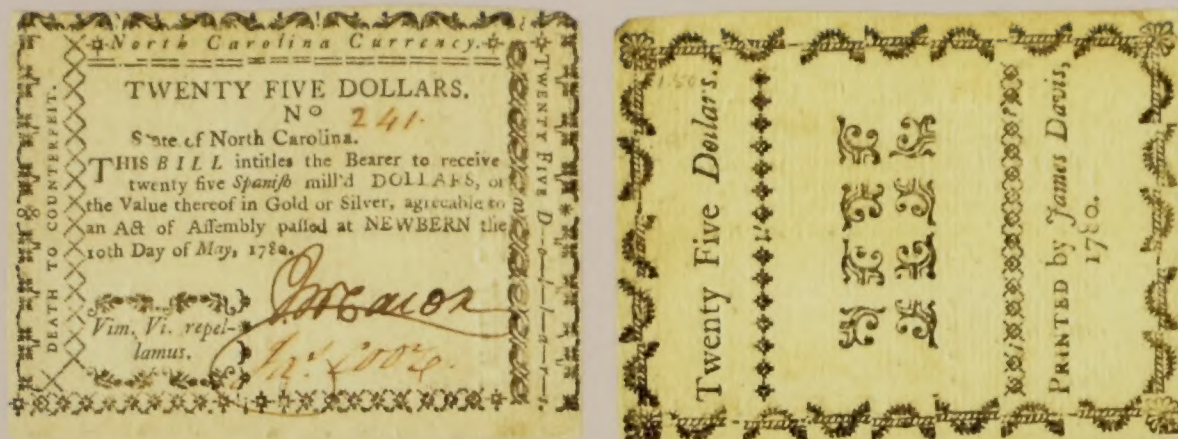 North Carolina Currency.
TWENTY FIVE DOLLARS.
No 241.
State of North Carolina.
THIS BILL intitles the Bearer to receive
twenty five Spanish mill'd DOLLARS, or
the Value thereof in Gold or Silver, agreeable to
an Act of Assembly passed at NEWBERN the
10th Day of May, 1780.
Vim. Vi. repel-
lamus.
DEATH TO COUNTERFEIT.
TWENTY FIVE D—o—l—l—a—r—s.
Twenty Five Dollars.
PRINTED by James Davis,
1780.